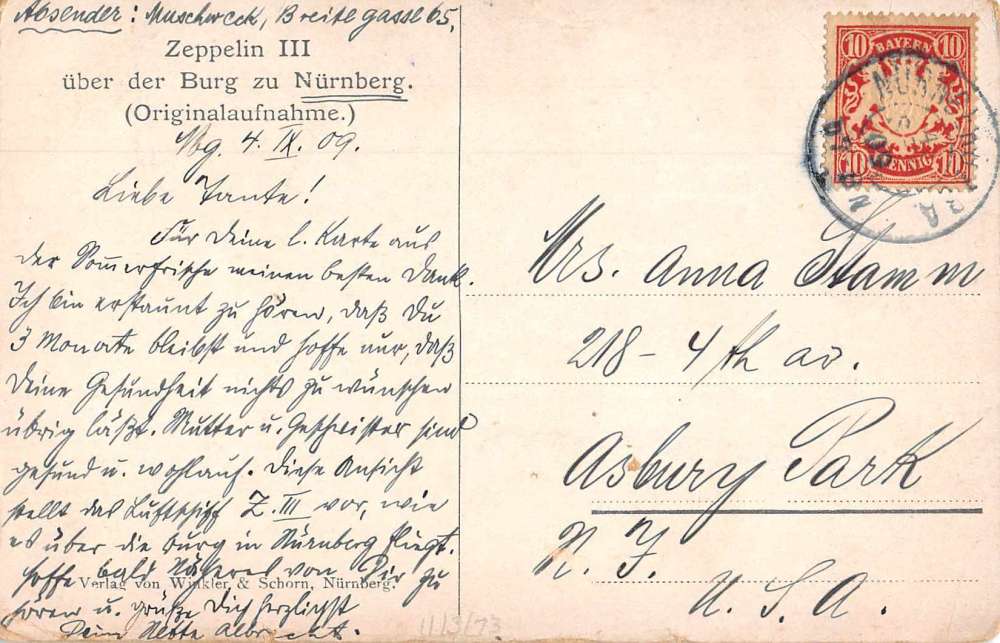 Absender: Muschweck, Breitegasse 65,
Zeppelin III
über der Burg zu Nürnberg.
(Originalaufnahme.)
Nbg. 4. IX. 09.
Liebe Tante!
Für Deine l. Karte aus
der Sommerfrische meinen besten Dank.
Ich bin erstaunt zu hören, daß Du
3 Monate bleibst und hoffe nur, daß
Deine Gesundheit nichts zu wünschen
übrig läßt. Mutter u. Geschwister sind
gesund u. wohlauf. Diese Ansicht
stellt das Luftschiff Z. III vor, wie
es über die Burg in Nürnberg fliegt.
Hoffe bald Näheres von Dir zu
Verlag von Winkler & Schorn, Nürnberg.
hören u. grüße Dich herzlichst
Dein Neffe
10 BAYERN 10
10 PFENNIG 10
Mrs. Anna Stamm
218 - 4th av.
Asbury Park
N. J.
U. S. A.
11/3/73